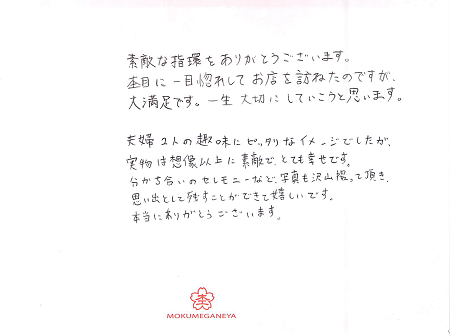 素敵な指環をありがとうございます。
杢目に一目惚れしてお店を訪ねたのですが、
大満足です。一生大切にしていこうと思います。
夫婦2人の趣味にピッタリなイメージでしたが、
実物は想像以上に素敵で、とても幸せです。
分かち合いのセレモニーなど、写真も沢山撮って頂き、
思い出として残すことができて嬉しいです。
本当にありがとうございます。
杢
MOKUMEGANEYA